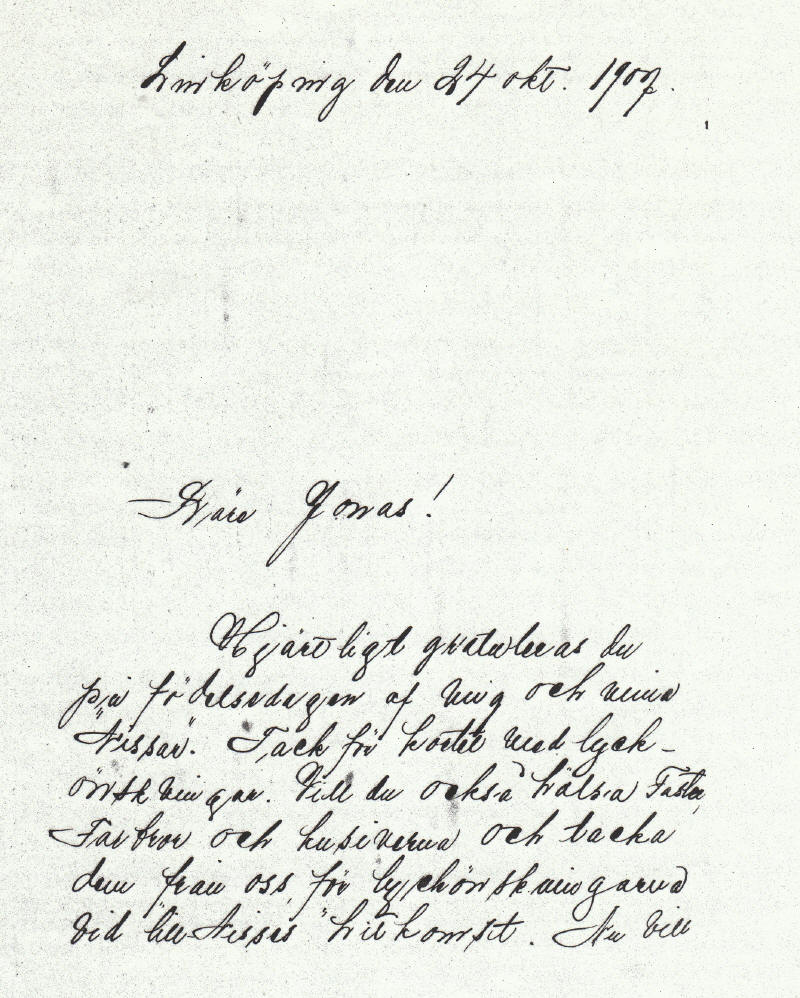 Linköping den 24 okt. 1907.
Kära Jonas!
Hjärtligt gratuleras du
på födelsedagen af mig och mina
"Nissar". Tack för kortet med lyck-
önskningar. Vill du också hälsa Faster,
Farbror och kusinerna och tacka
dem från oss för lyckönskningarna
vid lill-Nisses hitkomst. Nu vill